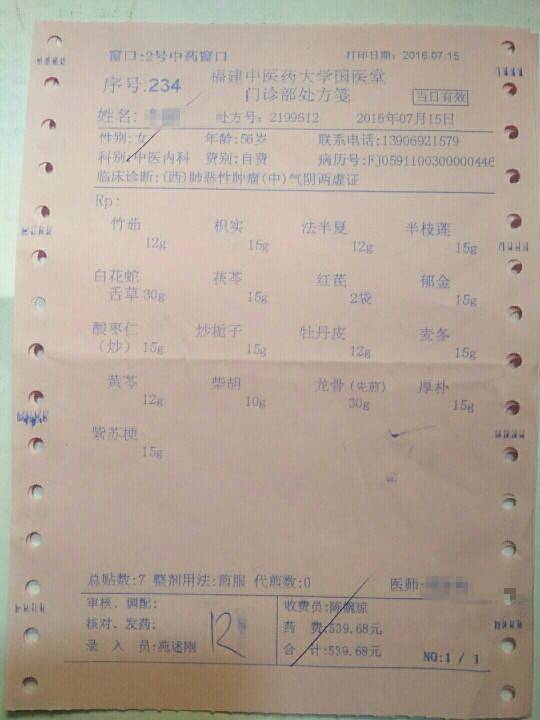 窗口:2号中药窗口 打印日期:2016.07.15
序号:234 福建中医药大学国医堂
门诊部处方笺 当日有效
姓名: 处方号:2199612 2016年07月15日
性别:女 年龄:56岁 联系电话:13906921579
科别:中医内科 费别:自费 病历号:FJ0591100300000446
临床诊断:(西)肺恶性肿瘤(中)气阴两虚证
Rp:
竹茹 枳实 法半夏 半枝莲
12g 15g 12g 15g
白花蛇 茯苓 红芪 郁金
舌草30g 15g 2袋 15g
酸枣仁 炒栀子 牡丹皮 麦冬
(炒) 15g 15g 12g 15g
黄芩 柴胡 龙骨(先煎) 厚朴
12g 10g 30g 15g
紫苏梗
15g
总贴数:7 整剂用法:煎服 代煎数:0 医师:
审核、调配: 收费员:陈婉琼
核对、发药: 药 费:539.68元
录 入 员:苑述刚 合 计:539.68元
NO:1 / 1